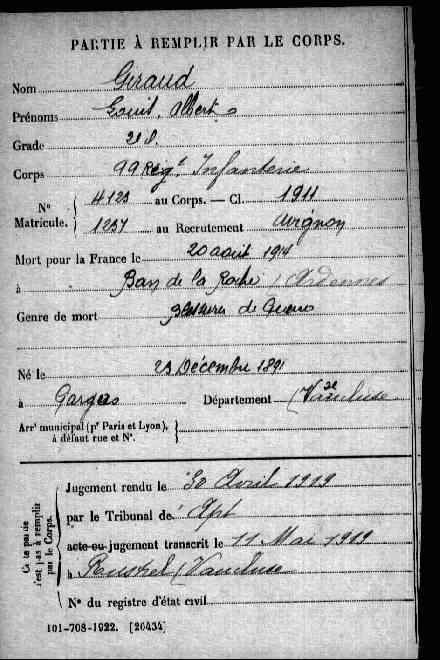 PARTIE À REMPLIR PAR LE CORPS.
Nom Giraud
Prénoms Louis, Albert
Grade 2e s.
Corps 99 Régt Infanterie
N° Matricule. { 4123 au Corps. — Cl. 1911
1237 au Recrutement Avignon
Mort pour la France le 20 août 1914
à Ban de la Roche (Ardennes
Genre de mort Blessures de Guerre
Né le 23 Décembre 1891
à Gargas Département (Vaucluse
Arrt municipal (pr Paris et Lyon), }
à défaut rue et N°.
Ce cadre n'est pas à remplir par le Corps.
Jugement rendu le 30 Avril 1919
par le Tribunal de Apt
acte ou jugement transcrit le 11 Mai 1919
à Rustrel (Vaucluse
N° du registre d'état civil
101-708-1922. [26434]